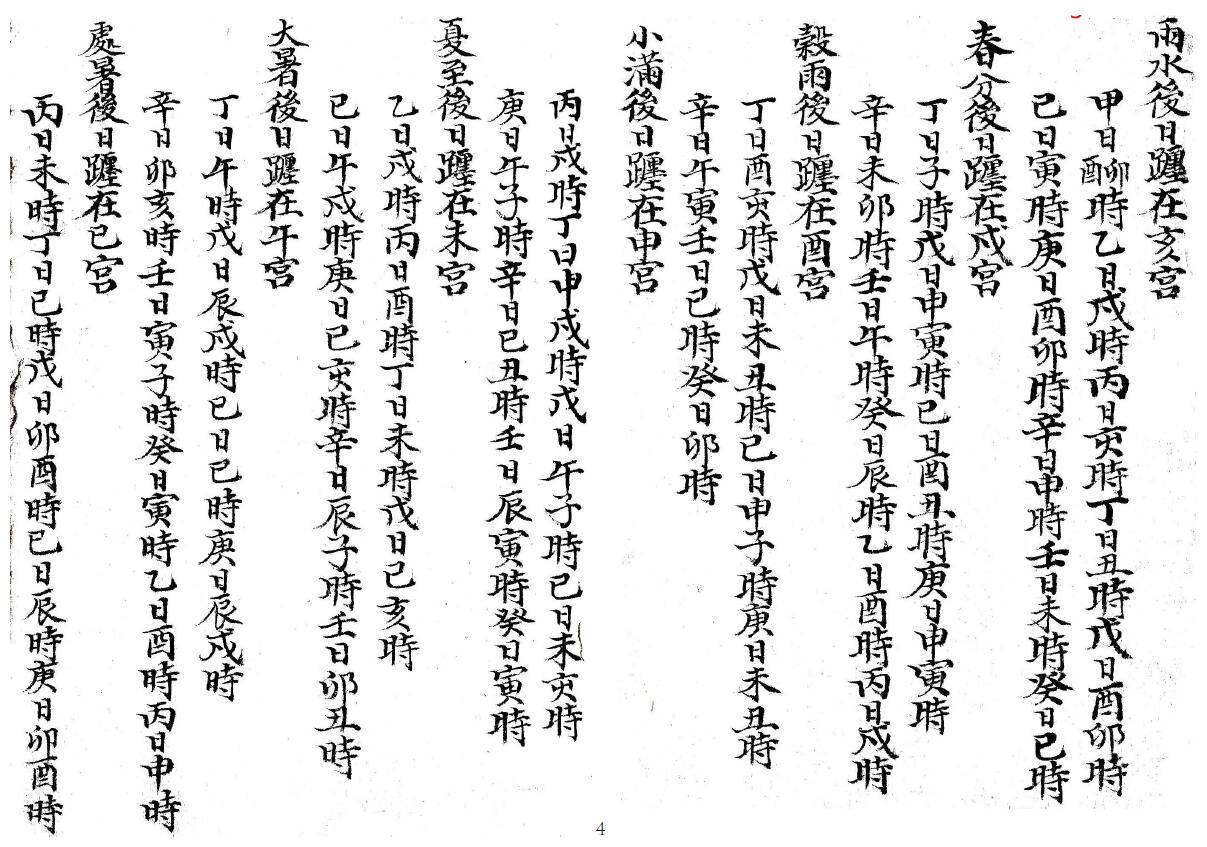 雨水後日躔在亥宮
甲日卯酉時乙日戍時丙日亥時丁日丑時戊日酉卯時
己日寅時庚日酉卯時辛日申時壬日未時癸日巳時
春分後日躔在戍宮
丁日子時戊日申寅時己日酉丑時庚日申寅時
辛日未卯時壬日午時癸日辰時乙日酉時丙日戍時
穀雨後日躔在酉宮
丁日酉亥時戊日未丑時己日申子時庚日未丑時
辛日午寅壬日巳時癸日卯時
小滿後日躔在申宮
丙日戍時丁日申戍時戊日午子時己日未亥時
庚日午子時辛日巳丑時壬日辰寅時癸日寅時
夏至後日躔在未宮
乙日戍時丙日酉時丁日未時戊日巳亥時
己日午戍時庚日巳亥時辛日辰子時壬日卯丑時
大暑後日躔在午宮
丁日午時戊日辰戍時己日巳時庚日辰戍時
辛日卯亥時壬日寅子時癸日寅時乙日酉時丙日申時
處暑後日躔在巳宮
丙日未時丁日巳時戊日卯酉時己日辰時庚日卯酉時
4